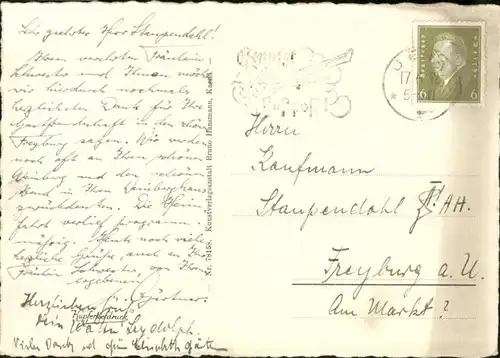 Sehr geehrter Herr Staupendahl!
Ihrem verehrten Fräulein
Schwester und Ihnen möchte
wir hierdurch nochmals
herzlichsten Dank für Ihre
Gastfreundschaft in dem schönen
Freyburg sagen. Wir werden
noch oft an Ihren schönen
Weinberg und den schönen
Abend in Ihrem Weinberghaus
zurückdenken. Die Heim
fahrt verlief programm
mässig. Ihnen noch viele
herzliche Grüße, auch an Ihr
Fräulein Schwester, von Ihrem
ergebenen
Gärtner.
Herzlichen
Kupfertiefdruck
Vielen Dank und
Nr. 78158. Kunstverlagsanstalt Bruno Hansmann, Kassel
Benutzt
Luftpost
17
6 6
Herrn
Kaufmann
Staupendahl
Freyburg a. U.
Am Markt?